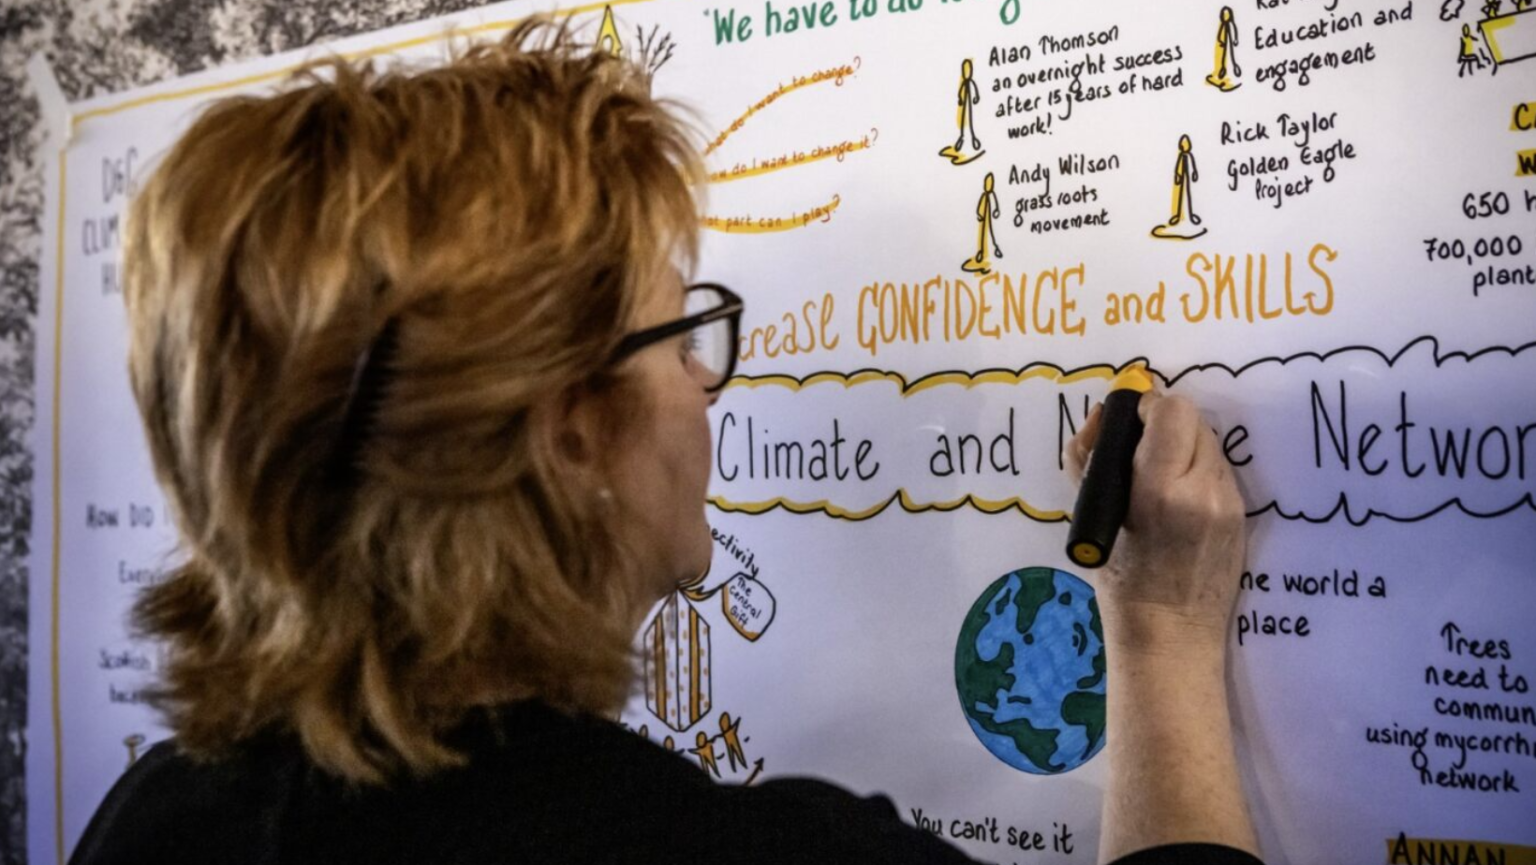 "We have to do
do I want to change?
do I want to change it?
part can I play?
Alan Thomson
an overnight success
after 15 years of hard
work!
Andy Wilson
grass roots
movement
Education and
engagement
Rick Taylor
Golden Eagle
Project
650
700,000
plant
crease CONFIDENCE and SKILLS
Climate and N e Networ
D&G
CLIM
HOW DID
Scottish
ectivity
The
General
Gift
he world a
place
Trees
need to
commun
using mycorrh
network
You can't see it
ANNAN